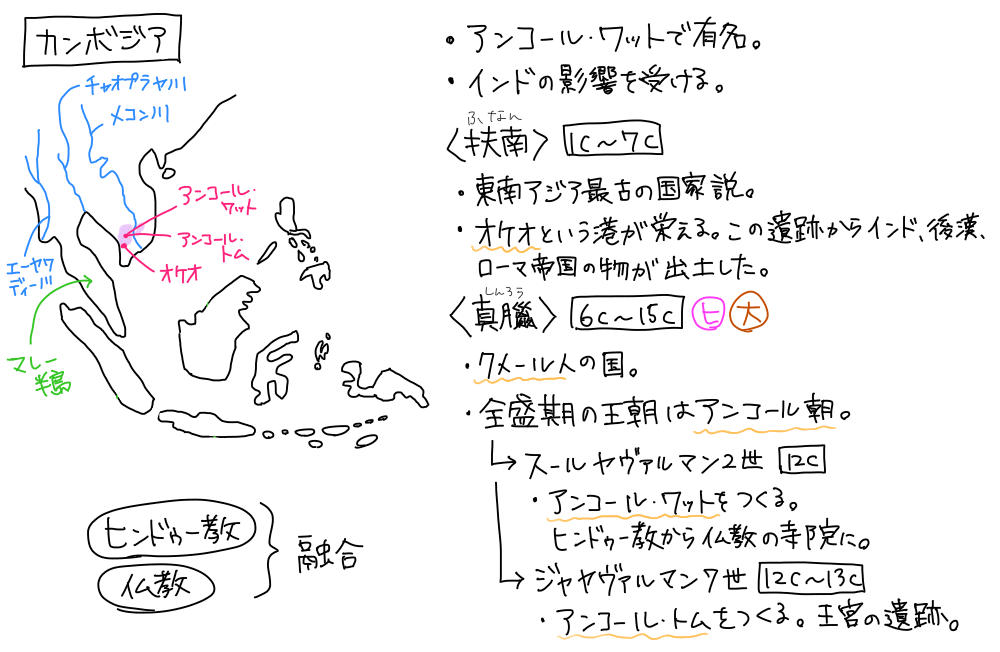 カンボジア
チャオプラヤ川
メコン川
アンコール・
ワット
アンコール・
トム
オケオ
エーヤワ
ディー川
マレー
半島
ヒンドゥー教
仏教
融合
・アンコール・ワットで有名。
・インドの影響を受ける。
ふなん
〈扶南〉 1C〜7C
・東南アジア最古の国家説。
・オケオという港が栄える。この遺跡からインド、後漢、
ローマ帝国の物が出土した。
しんろう
〈真臘〉 6C〜15C ヒ 大
・クメール人の国。
・全盛期の王朝はアンコール朝。
→スールヤヴァルマン2世 12C
・アンコール・ワットをつくる。
ヒンドゥー教から仏教の寺院に。
→ジャヤヴァルマン7世 12C〜13C
・アンコール・トムをつくる。王宮の遺跡。